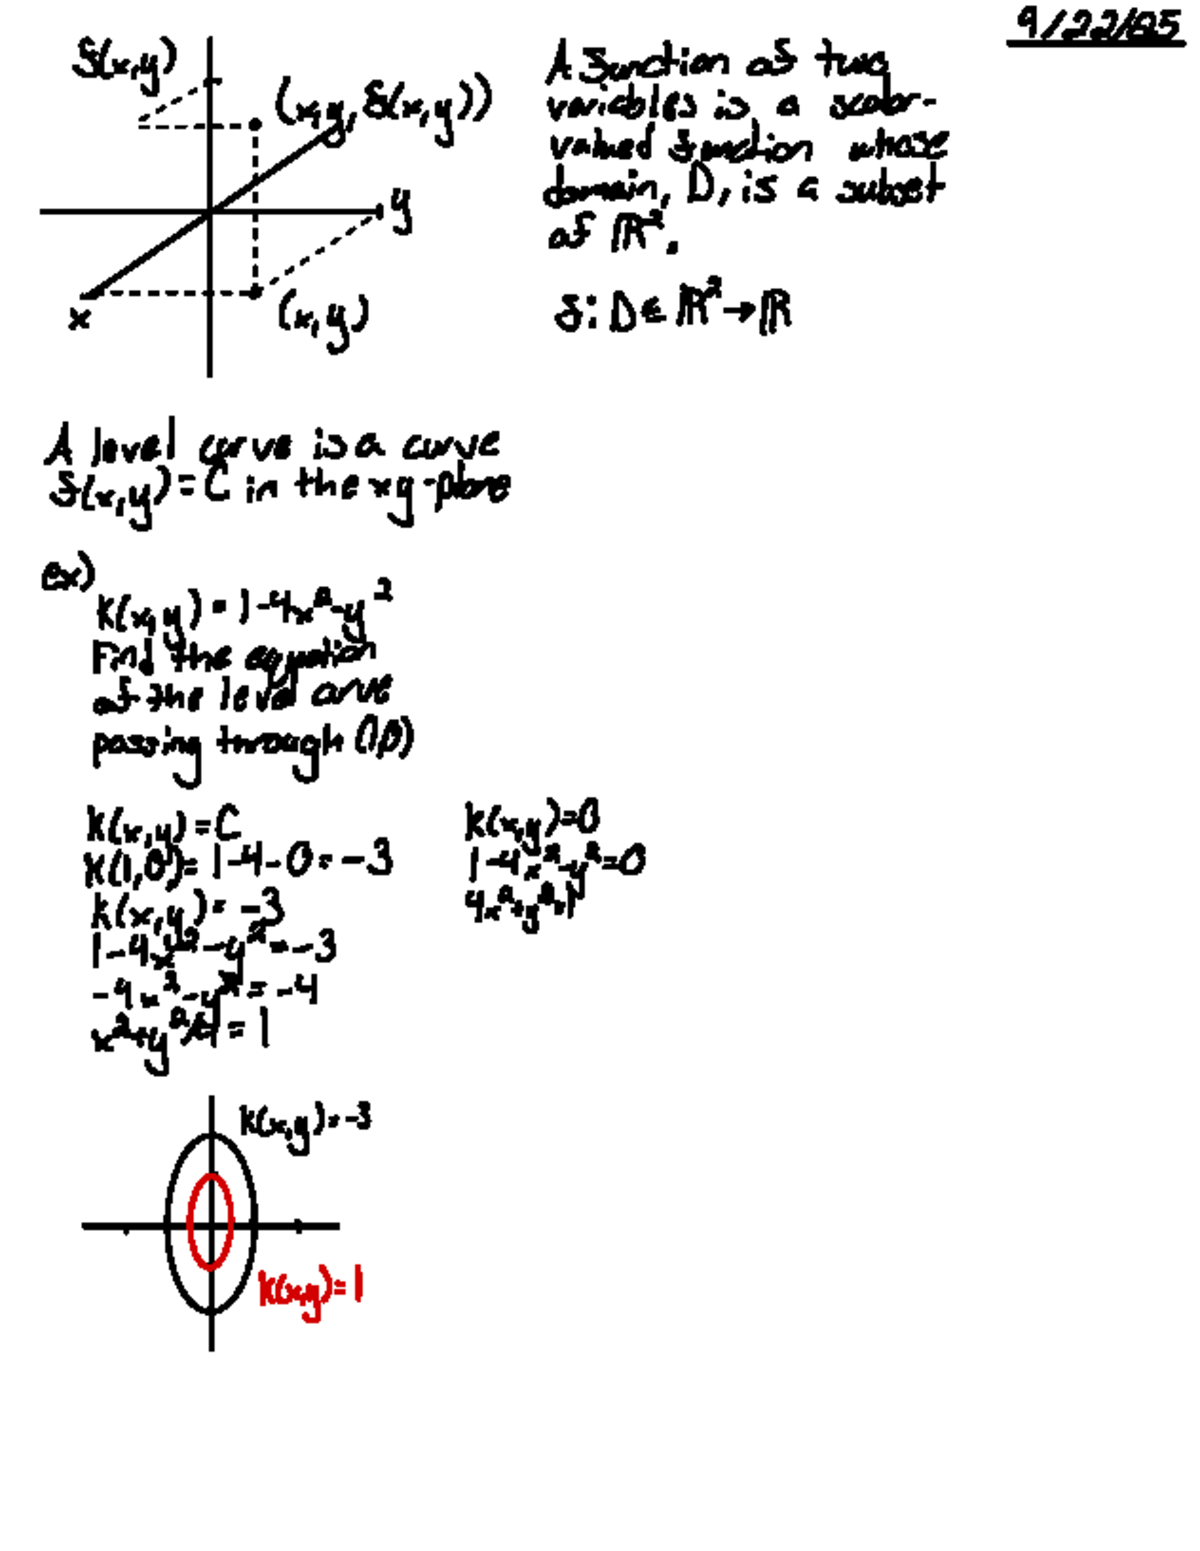 9/22/25
f(x,y)
(x,y,f(x,y))
y
x
(x,y)
A function of two
variables is a scalar-
valued function whose
domain, D, is a subset
of ℝ².
f: D ∈ ℝ² → ℝ
A level curve is a curve
f(x,y) = C in the xy-plane
ex)
K(x,y) = 1-4x²-y²
Find the equation
of the level curve
passing through (1,0)
K(x,y) = C
K(1,0) = 1-4-0 = -3
K(x,y) = -3
1-4x²-y² = -3
-4x²-y² = -4
x²+y²/4 = 1
K(x,y)=0
1-4x²-y²=0
4x²+y²=1
K(x,y) = -3
K(x,y) = 1